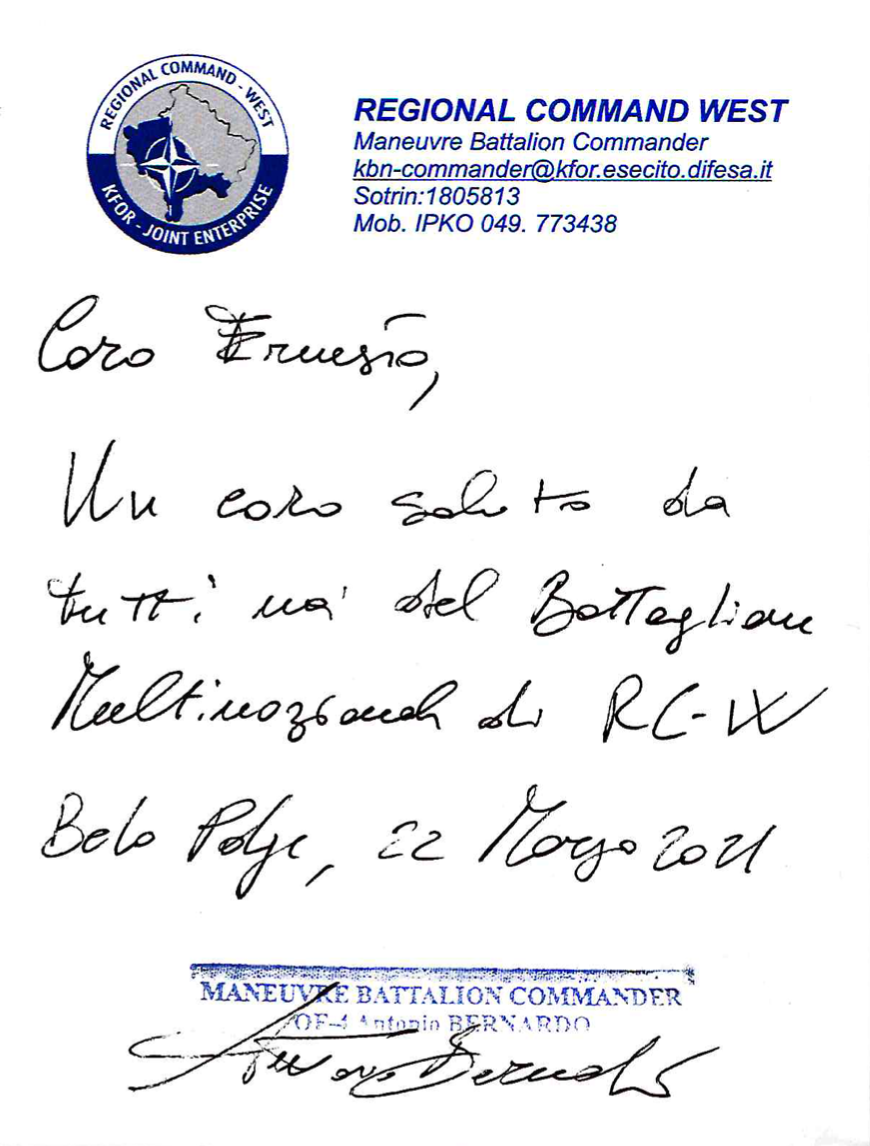 REGIONAL COMMAND - WEST
KFOR - JOINT ENTERPRISE
REGIONAL COMMAND WEST
Maneuvre Battalion Commander
kbn-commander@kfor.esecito.difesa.it
Sotrin:1805813
Mob. IPKO 049. 773438
Caro Ernesto,
Un caro saluto da
tutti noi del Battaglione
Multinazionale di RC-W
Belo Polje, 22 Marzo 2021
MANEUVRE BATTALION COMMANDER
OF-4 Antonio BERNARDO
Antonio Bernardo